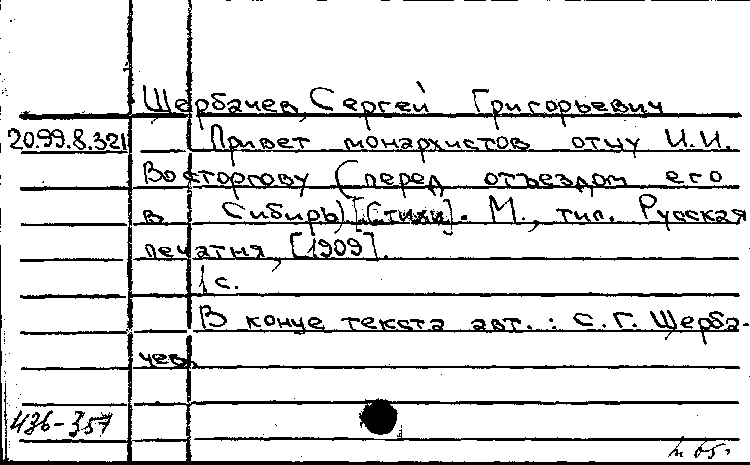 Щербачев, Сергей Григорьевич
20.99.8.321
Привет монархистов отцу И.И.
Восторгову (перед отъездом его
в Сибирь) [Стихи]. М., тип. Русская
печатня, [1909].
1 с.
В конце текста авт.: С.Г. Щерба-
чев.
436-357